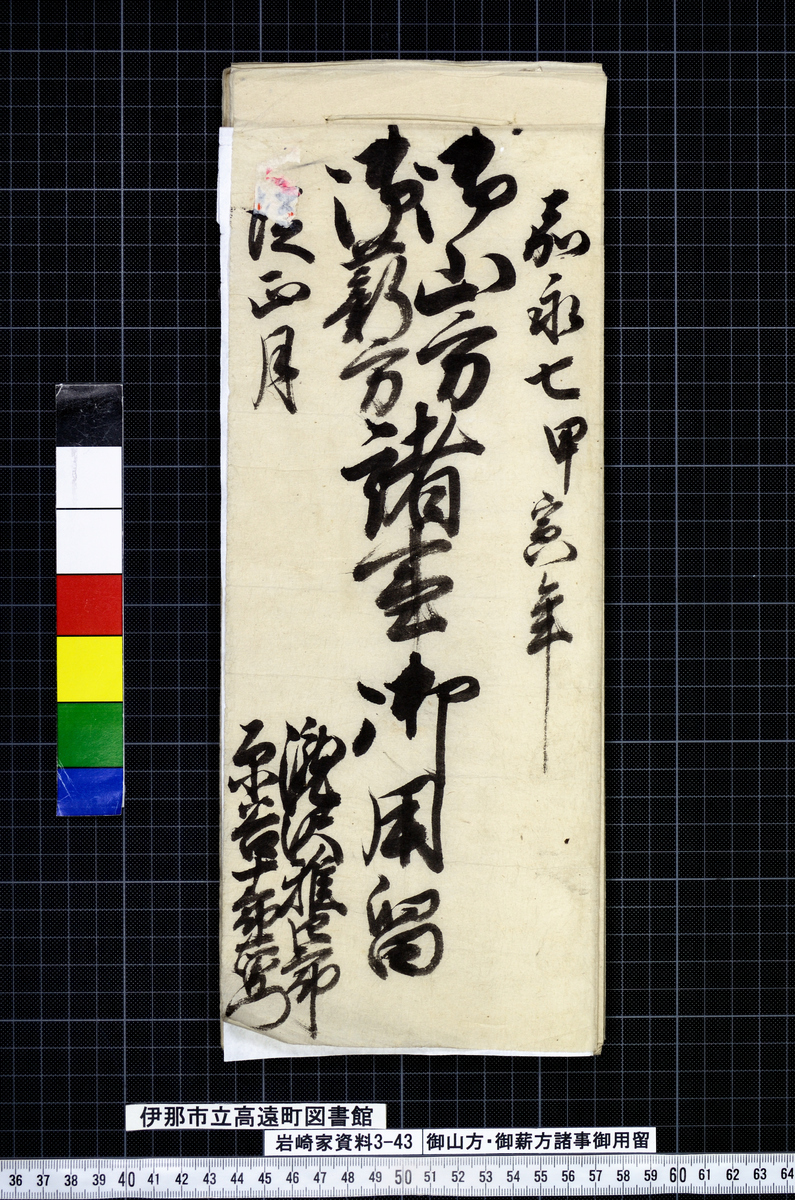 嘉永七甲寅年
御山方
御薪方
諸事御用留
従正月
瀧沢雅四郎
原若十郎
伊那市立高遠町図書館
岩崎家資料3-43 御山方・御薪方諸事御用留
36 37 38 39 40 41 42 43 44 45 46 47 48 49 50 51 52 53 54 55 56 57 58 59 60 61 62 63 64